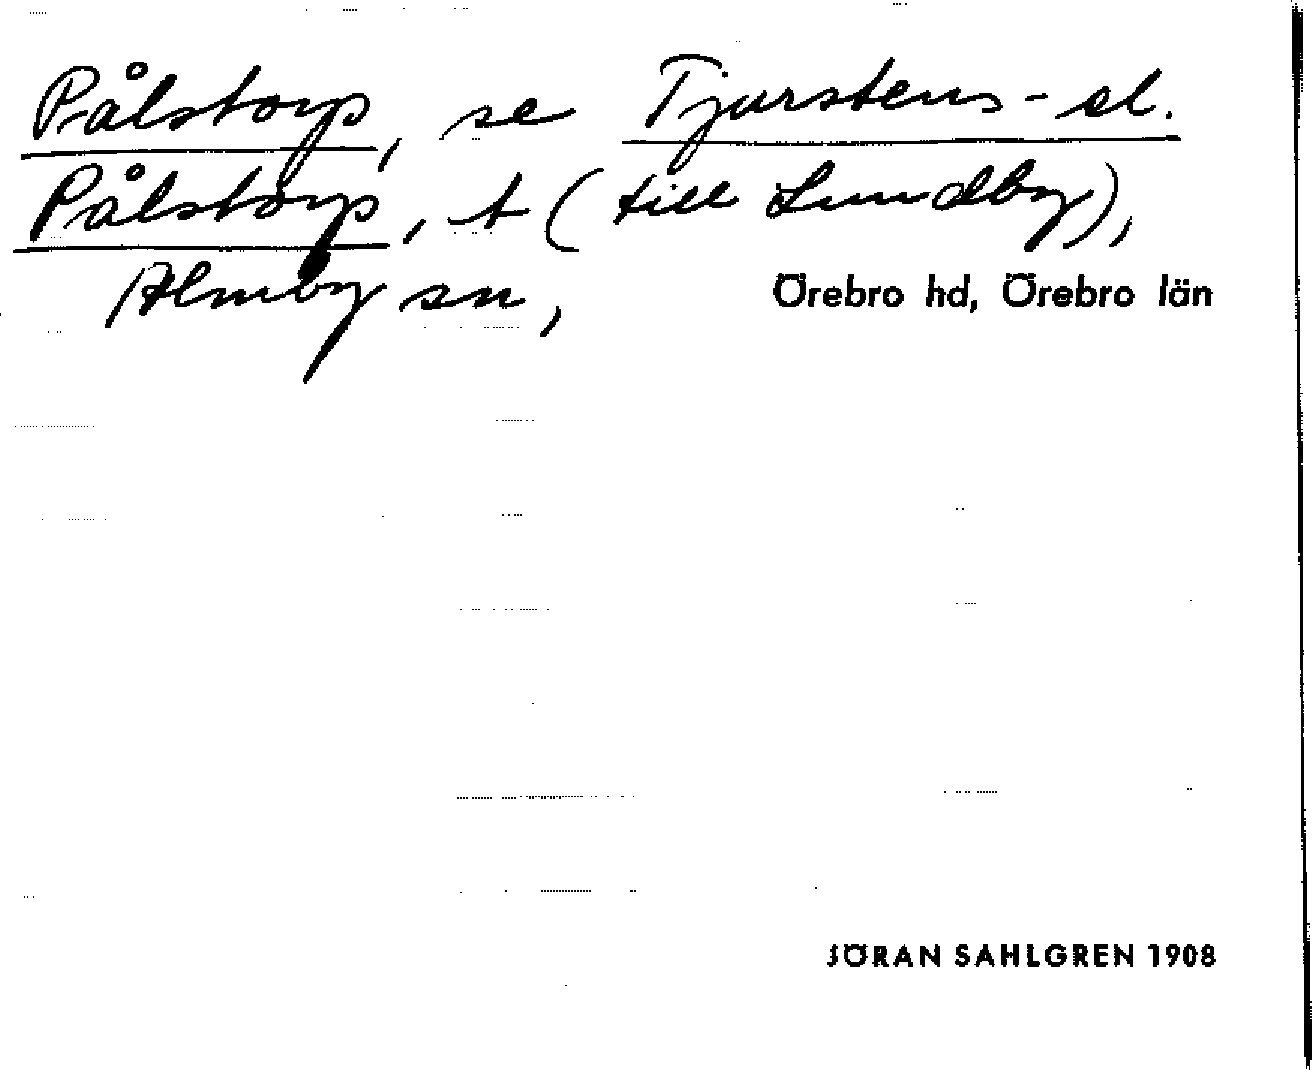 Pålstorp, se Tjurstens- el.
Pålstorp, t (till Lundby),
Almby sn, Örebro hd, Örebro län
JÖRAN SAHLGREN 1908